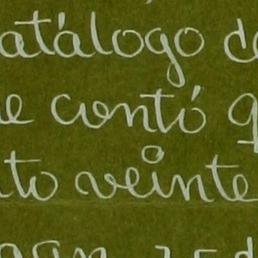 atálogo d
e contó q
to veinte